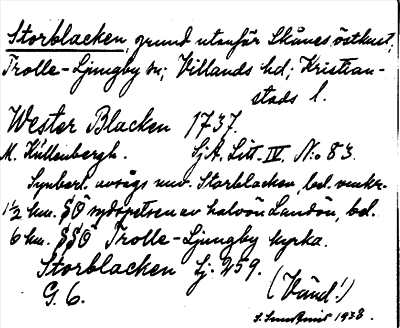 Storblacken, grund utanför Skånes östkust,
Trolle-Ljungby sn; Villands hd; Kristian-
stads l.
Wester Blacken 1737.
M. Küllenbergh. SjA. Litt. IV. No 83.
Synberl. avsågs nuv. Storblacken, bel. omkr.
1½ km. SÖ sydspetsen av halvön Landön, bel.
6 km. SSÖ Trolle-Ljungby kyrka.
Storblacken Sj. 259.
G. 6. (Vänd!)
1938.